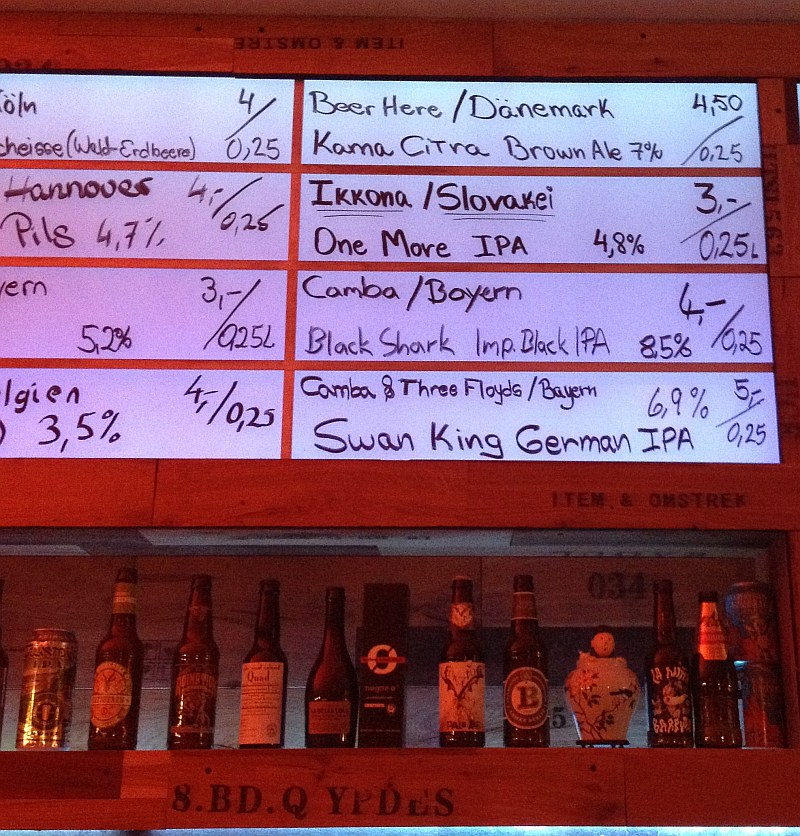 ITEM & OMSTRE
öln 4/0,25
cheisse (Wald-Erdbeere)
Hannover 4,-/0,25
Pils 4,7%
yern 3,-/0,25L
5,2%
lgien 4,-/0,25
) 3,5%
Beer Here / Dänemark 4,50/0,25
Kama Citra Brown Ale 7%
Ikkona / Slovakei 3,-/0,25L
One More IPA 4,8%
Camba / Bayern 4,-/0,25
Black Shark Imp. Black IPA 8,5%
Camba & Three Floyds / Bayern 6,9% 5,-/0,25
Swan King German IPA
ITEM & OMSTREK
034
Quad
B
8.BD.Q YPDES